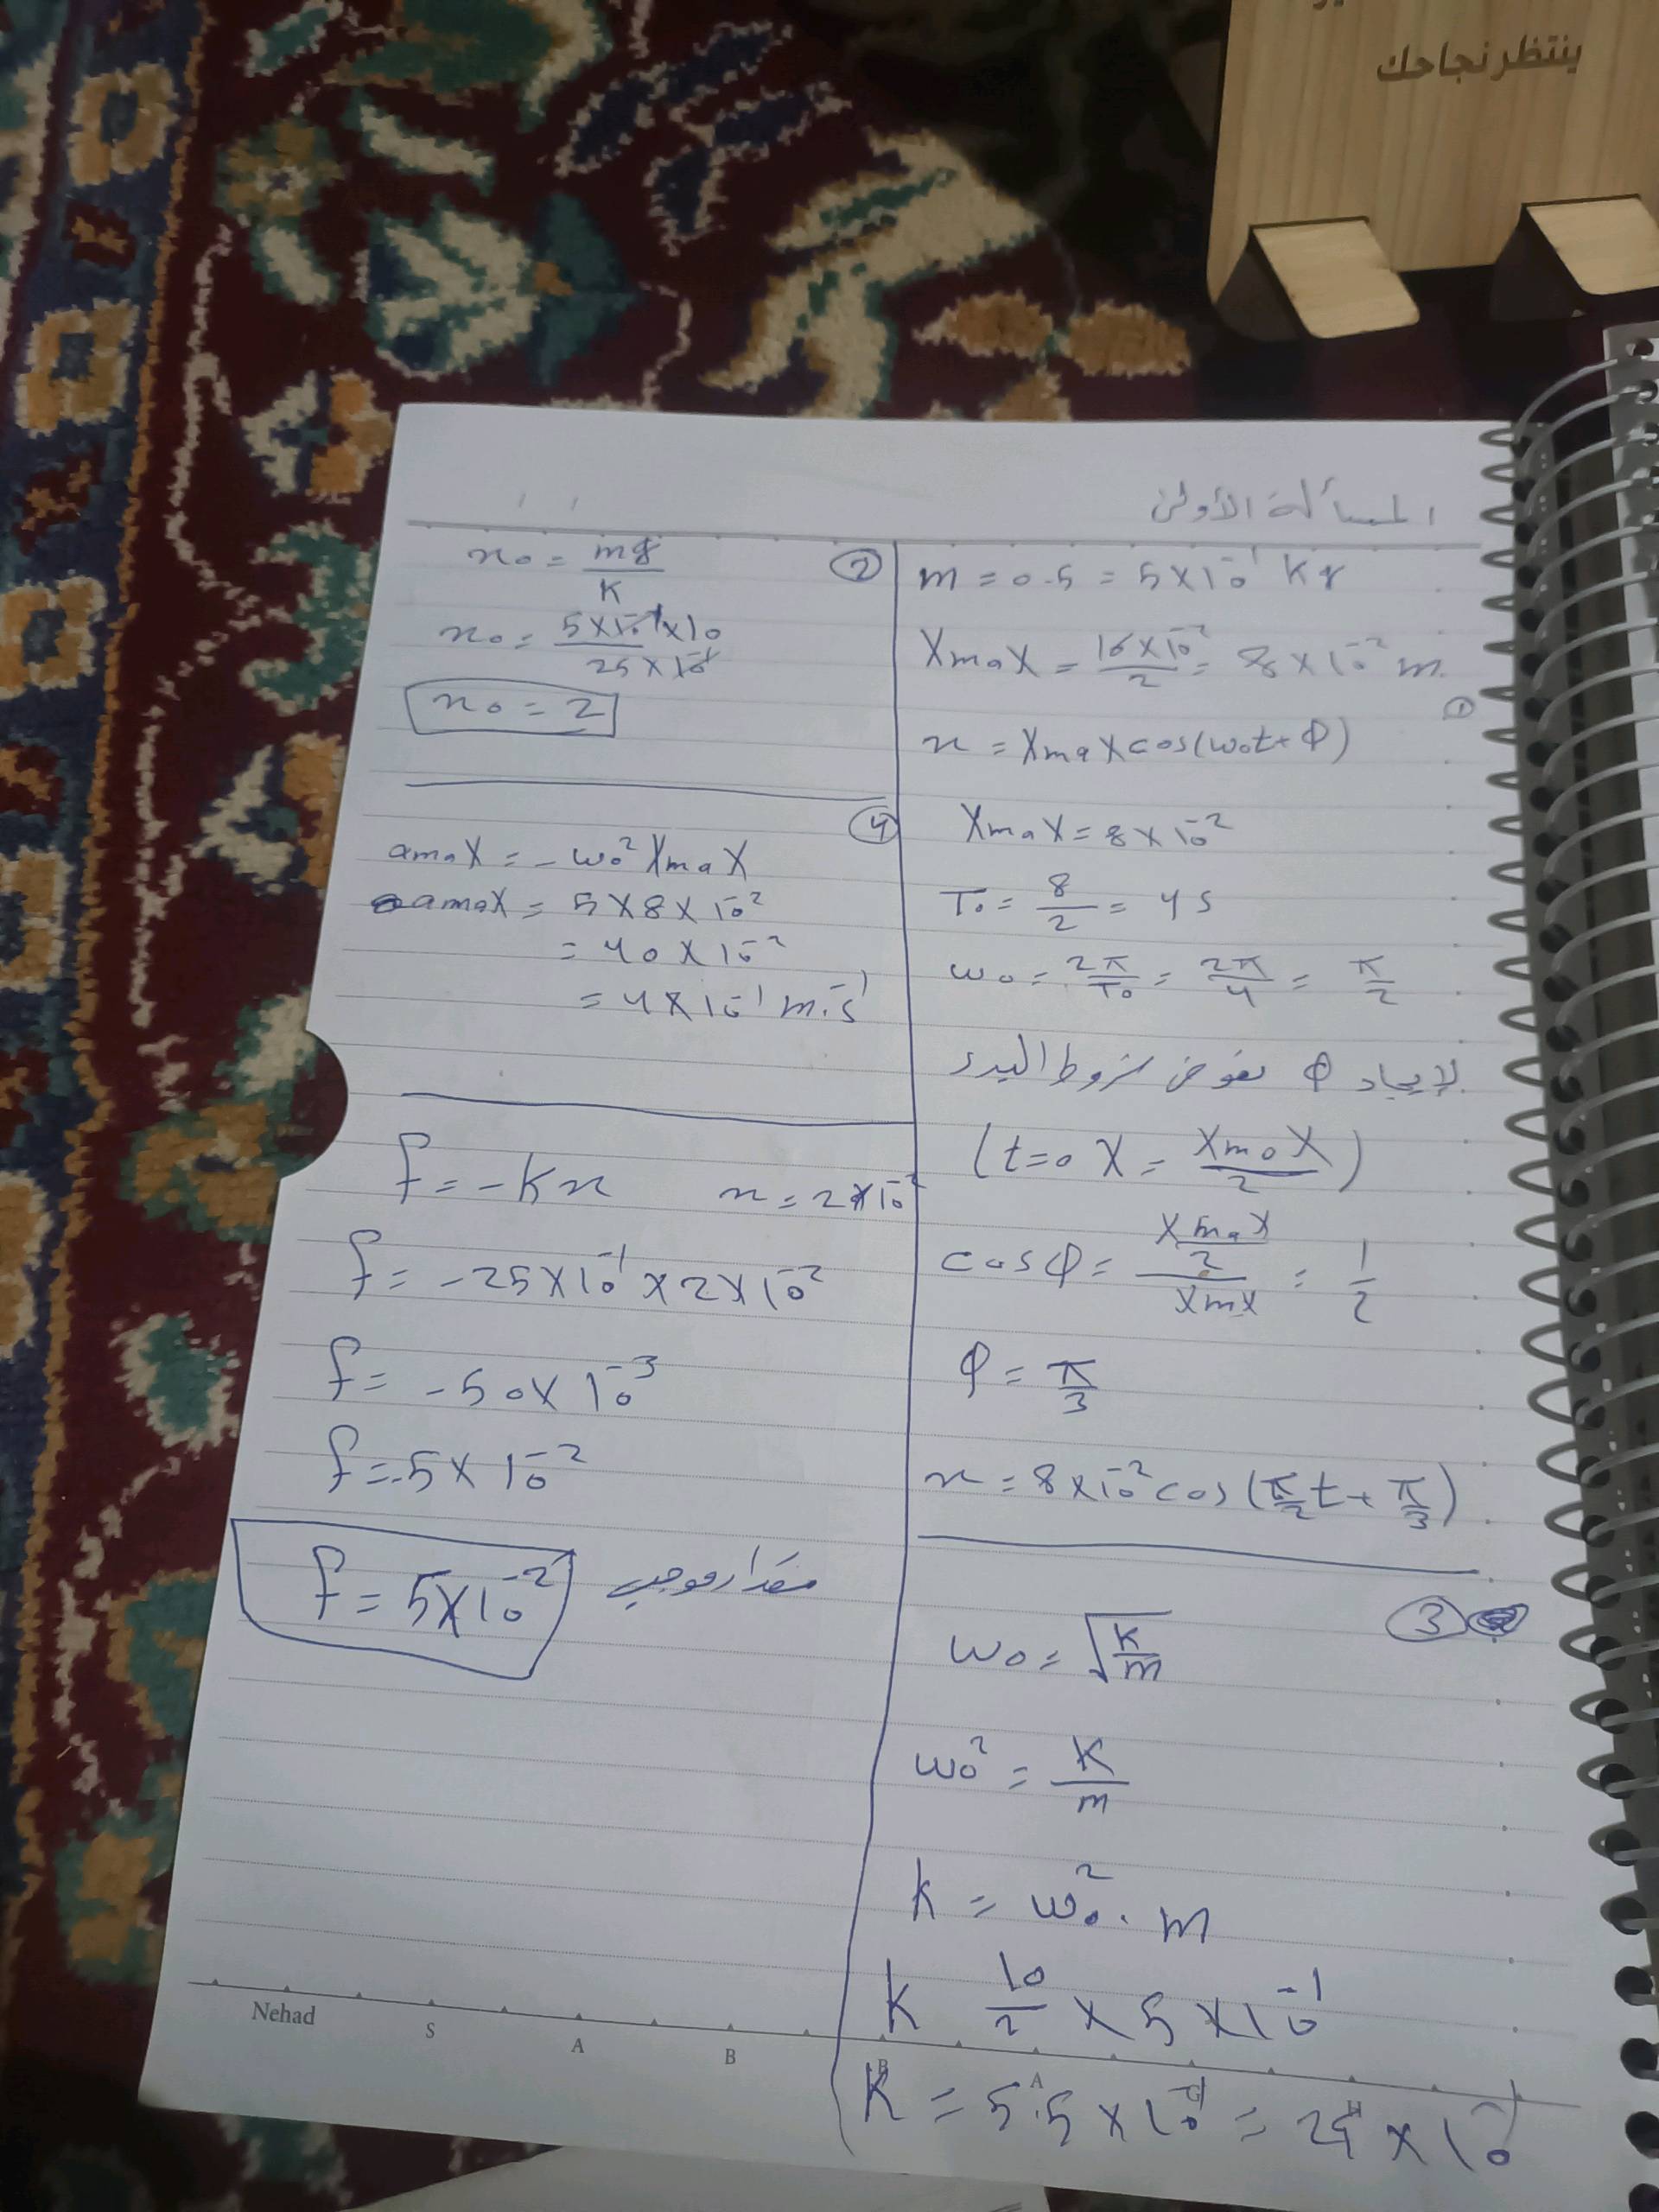 ينتظر نجاحك
المسألة الأولى
m = 0.5 = 5×10⁻¹ kg
Xmax = 16×10⁻²/2 = 8×10⁻² m
①
x = Xmax cos(ω₀t+φ)
Xmax = 8×10⁻²
T₀ = 8/2 = 4s
ω₀ = 2π/T₀ = 2π/4 = π/2
لإيجاد φ نعوض شروط البدء
(t=0 X = Xmax/2)
cosφ = (Xmax/2)/Xmx = 1/2
φ = π/3
x = 8×10⁻² cos(π/2 t + π/3)
③
ω₀ = √(k/m)
ω₀² = k/m
k = ω₀² . m
k 10/2 × 5×10⁻¹
k = 5.5×10⁻¹ = 25×10⁻¹
②
x₀ = mg/k
x₀ = 5×10⁻¹×10/25×10⁻¹
x₀ = 2
④
amax = -ω₀² Xmax
amax = 5×8×10⁻²
= 40×10⁻²
= 4×10⁻¹ m.s⁻¹
f = -kx x = 2×10⁻²
f = -25×10⁻¹×2×10⁻²
f = -50×10⁻³
f = -5×10⁻²
f = 5×10⁻² مقدار موجب
Nehad S A B B A G H